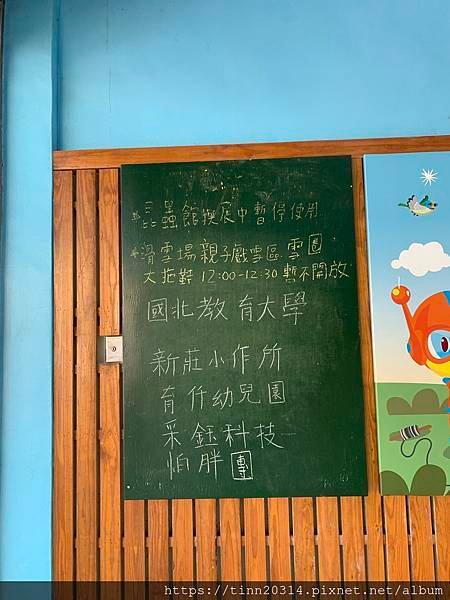 *昆蟲館換展中暫停使用
*滑雪場親子戲雪區雪圈
大拖鞋 12:00-12:30 暫不開放
國北教育大學
新莊小作所
育仟幼兒園
采鈺科技
怕胖團
https://tinn20314.pixnet.net/album